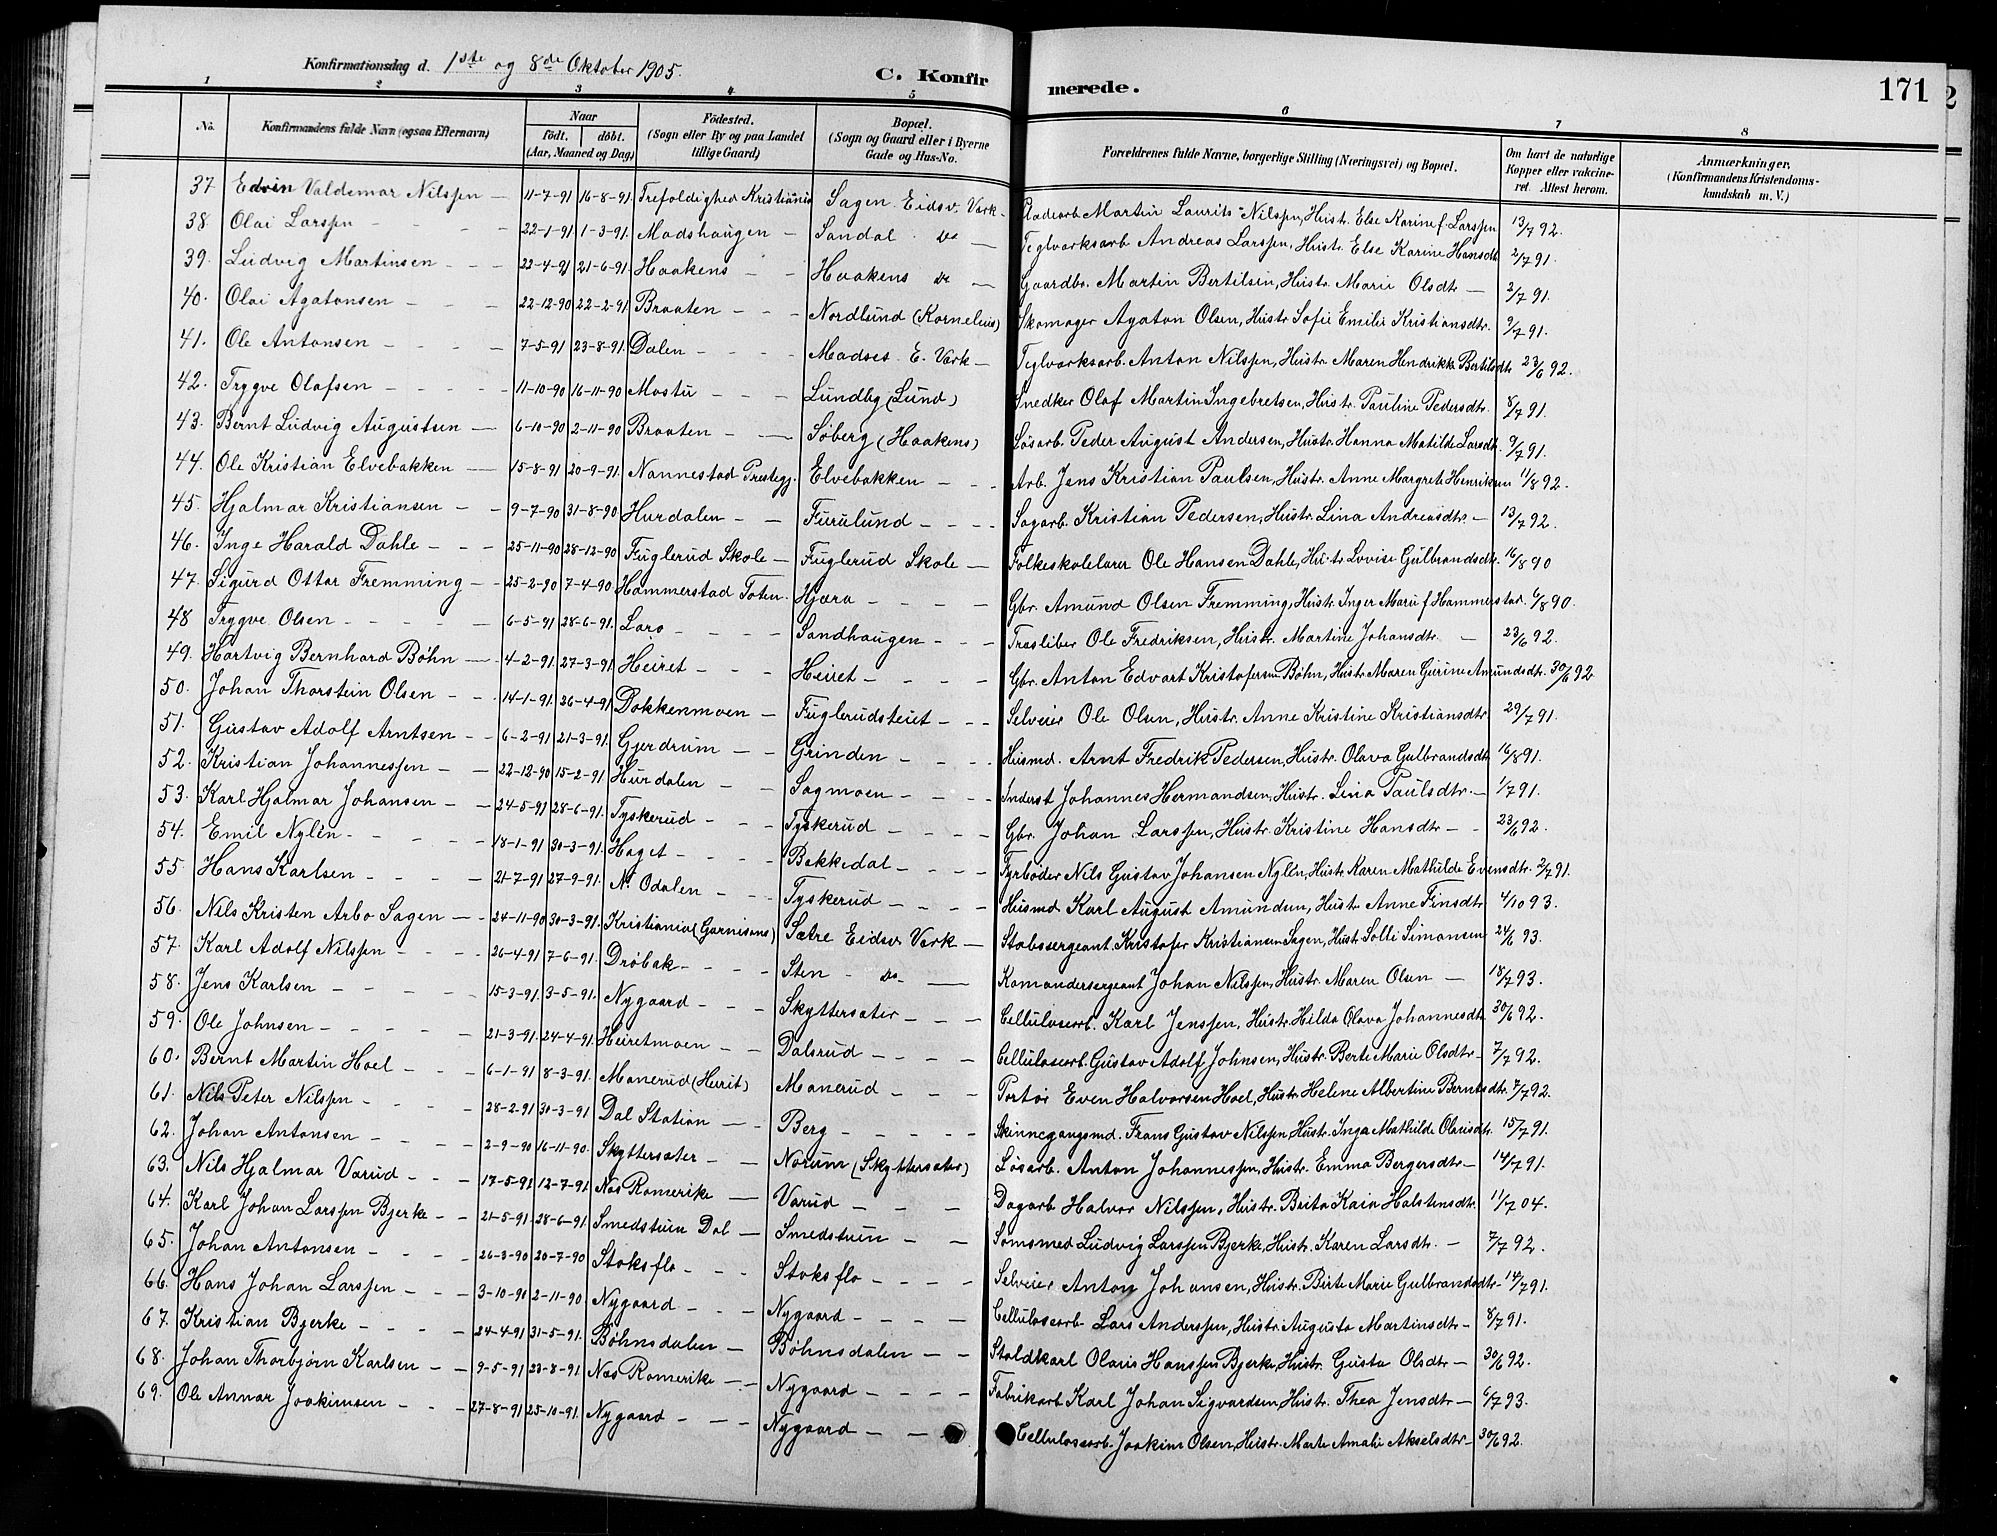 Konfirmationsdag d. 1ste og 8de Oktober 1905.
C. Konfirmerede.
171
1 2 3 4 5 6 7 8
No.
Konfirmandens fulde Navn (ogsaa Efternavn)
Naar
födt. döbt.
(Aar, Maaned og Dag)
Födested.
(Sogn eller By og paa Landet
tillige Gaard)
Bopæl.
(Sogn og Gaard eller i Byerne
Gade og Hus-No.
Forældrenes fulde Navne, borgerlige Stilling (Næringsvei) og Bopæl.
Om havt de naturlige
Kopper eller vakcine-
ret. Attest herom.
Anmærkninger,
(Konfirmandens Kristendoms-
kundskab m. V.)
37 Edvin Valdemar Nilssen 11-7-91 16-8-91. Trefoldighed Kristiania Sagen Eidsv. Værk Pladearb. Martin Laurits Nilssen, Hustr. Else Karine f. Larssen 13/7 92.
38. Olai Larssen 22-1-91 1-3-91. Madshaugen Sandal do Teglværksarb. Andreas Larssen, Hustr. Else Karine Hansdt. 2/7 91.
39. Ludvig Martinsen 22-4-91 21-6-91. Haakens Haakens do Gaardbr. Martin Bertilsen, Hustr. Marie Olsdtr 2/7 91.
40. Olai Agatonsen 22-12-90 22-2-91. Braaten Nordlund (Kornelius) Skomager Agaton Olsen, Hustr Sofie Emilie Kristiansdtr. 9/7 91.
41. Ole Antonsen 7-5-91 23-8-91. Dalen Madses E. Værk Teglværksarb. Anton Nilssen, Hustr. Maren Hendrikke Bertilsdt 23/6 92.
42. Trygve Olafsen 11-10-90 16-11-90 Mostu Lundby (Lund) Snedker Olaf Martin Ingebretsen, Hustr. Pauline Pedersdtr. 8/7 91.
43. Bernt Ludvig Augustsen 6-10-90 2-11-90 Braaten Søberg (Haakens) Løsarb. Peder August Andersen, Hustr. Hanna Matilde Larsdt. 9/7 91.
44. Ole Kristian Elvebakken 15-8-91 20-9-91. Nannestad Prestegj. Elvebakken Arb. Jens Kristian Paulsen, Hustr. Anne Margrete Henriksen 11/8 92.
45. Hjalmar Kristiansen 9-7-90 31-8-90 Hurdalen Furulund Sagarb. Kristian Pedersen, Hustr. Lina Andreasdtr. 13/7 92.
46. Inge Harald Dahle 25-11-90 28-12-90 Fuglerud Skole Fuglerud Skole Folkeskolelærer Ole Hansen Dahle, Hustr. Lovise Gulbrandsdt. 16/8 90
47. Sigurd Ottar Fremming 25-2-90 7-4-90 Hammerstad Toten Hjæra Gbr. Amund Olsen Fremming, Hustr. Inger Marie f Hammerstad 6/8 90.
48 Trygve Olsen 6-5-91 28-6-91. Laro Sandhaugen Træsliber Ole Fredriksen, Hustr. Martine Johansdtr. 23/6 92.
49. Hartvig Bernhard Bøhn 4-2-91. 27-3-91. Heiret Heiret Gbr. Anton Edvart Kristofersen Bøhn, Hustr. Maren Gurine Amundsdtr. 30/6 92
50. Johan Thorstein Olsen 14-1-91. 26-4-91 Dokkenmoen Fuglerudsteiet Selveier Ole Olsen, Hustr. Anne Kristine Kristiansdtr 29/7 91.
51. Gustav Adolf Arntsen 6-2-91 21-3-91. Gjerdrum Grinden Husmd. Arnt Fredrik Pedersen, Hustr. Olava Gulbrandsdt 16/8 91.
52. Kristian Johannessen 22-12-90 15-2-91. Hurdalen Sagmoen Inderst Johannes Hermandsen, Hustr. Lina Paulsdtr. 1/7 91.
53. Karl Hjalmar Johansen 24-5-91 28-6-91. Tyskerud Tyskerud Gbr. Johan Larssen, Hustr. Kristine Hansdtr 23/6 92.
54. Emil Nylén 18-1-91 30-3-91. Haget Bakkedal Fyrbøder Nils Gustav Johansen Nylén, Hustr. Karen Mathilde Evensdtr. 2/7 91.
55. Hans Karlsen 21-7-91 27-9-91. N. Odalen Tyskerud Husmd Karl August Amundsen, Hustr. Anne Finsdtr 4/10 93.
56. Nils Kristen Arbo Sagen 24-11-90 30-3-91. Kristiania (Garnisons) Sætre Eidsv. Værk Stabssergeant. Kristofer Kristiansen Sagen, Hustr. Solli Simonsen 24/6 93.
57. Karl Adolf Nilssen 26-4-91 7-6-91. Drøbak Sten do Komandersergeant Johan Nilssen, Hustr. Maren Olsen 18/7 93.
58. Jens Karlsen 15-3-91. 3-5-91. Nygaard Skyttersæter Cellulosearb. Karl Jenssen, Hustr. Hilda Olava Johannesdt. 30/6 92.
59. Ole Johnsen 21-3-91. 24-4-91. Heiretmoen Dalsrud Cellulosearb. Gustav Adolf Johnsen, Hustr. Berte Marie Olsdtr 7/7 92.
60. Bernt Martin Hoel 6-1-91 8-3-91. Manerud (Heirit) Manerud Portør Even Halvorsen Hoel, Hustr. Helene Albertine Berntsdtr. 7/7 92.
61. Nils Peter Nilssen 28-2-91 30-3-91 Dal Station Berg Skinnegangsmd. Frans Gustav Nilssen, Hustr. Inga Mathilde Olausdt. 15/7 91.
62. Johan Antonsen 2-9-90 16-11-90. Skyttersæter Norum (Skyttersæter) Løsarb. Anton Johannessen, Hustr. Emma Bergersdtr 14/7 91.
63. Nils Hjalmar Varud 17-5-91 12-7-91. Næs Romerike Varud Dagarb Halvor Nilssen, Hustr. Brita Kaia Halstensdtr. 11/7 04.
64. Karl Johan Larssen Bjerke 21-5-91. 28-6-91. Smedstuen Dal Smedstuen Sømsmed Ludvig Larssen Bjerke, Hustr. Karen Larsdtr. 7/7 92.
65. Johan Antonsen 26-3-90 20-7-90 Stoksflo Stoksflo Selveier Anton Johansen, Hustr. Birte Marie Gulbrandsdtr. 14/7 91.
66. Hans Johan Larssen 3-10-90 2-11-90 Nygaard Nygaard Cellulosearb. Lars Anderssen, Hustr. Augusta Martinsdtr 8/7 91.
67. Kristian Bjerke 24-4-91 31-5-91. Bøhnsdalen Bøhnsdalen Staldkarl Olaus Hanssen Bjerke, Hustr. Gusta Olsdtr 30/6 92.
68. Johan Thorbjørn Karlsen 9-5-91 23-8-91. Næs Romerike Nygaard Fabrikarb Karl Johan Sigvardsen, Hustr. Thea Jensdtr 6/7 93.
69. Ole Annar Joakimsen 27-8-91 25-10-91. Nygaard Nygaard Cellulosearb. Joakim Olsen, Hustr. Marte Amalie Akselsdtr 30/6 92.